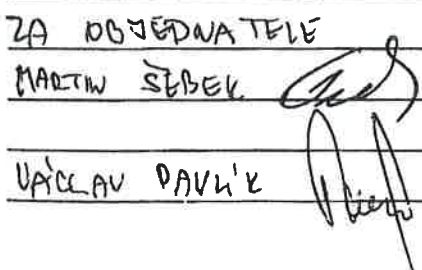 ZA OBJEDNATELE
MARTIN ŠEBEK
VÁCLAV PAVLÍK